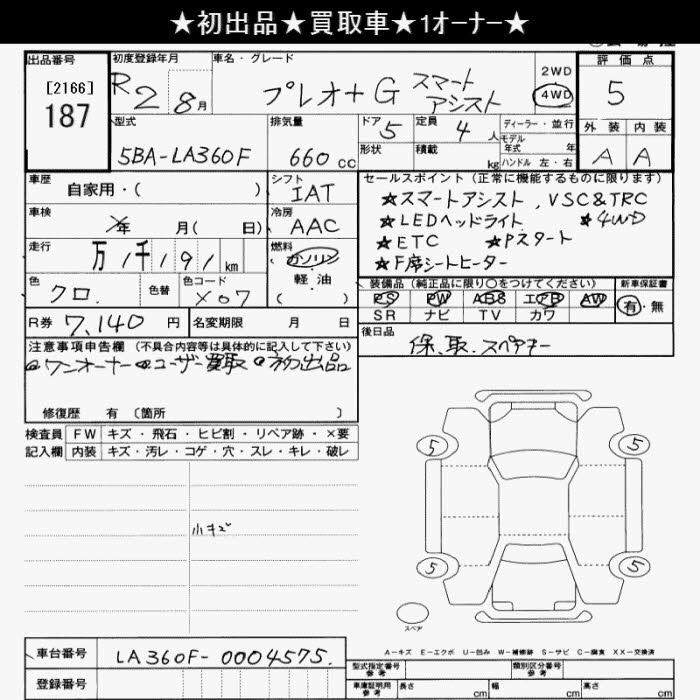 ★初出品★買取車★1オーナー★
出品番号 初度登録年月 車名・グレード 評価点
[2166]
187
R 2 8月 プレオ+ G スマートアシスト
2WD
4WD
5
型式 排気量 ドア 定員 ディーラー・並行 外装 内装
5BA-LA360F 660cc 5 4人 モデル年式 年 A A
形状 積載 kg ハンドル 左・右
車歴 自家用・( ) シフト IAT
セールスポイント(正常に機能するものに限ります)
★スマートアシスト、VSC&TRC
★LEDヘッドライト ★4WD
★ETC ★Pスタート
★F席シートヒーター
車検 年 月( 日) 冷房 AAC
走行 万 1千191km 燃料 ガソリン
軽油
( )
色 クロ. 色替 色コード X07
装備品(純正品に限り○をつけてください) 新車保証書
PS PW ABS エアB AW 有・無
SR ナビ TV カワ
R券 7,140円 名変期限 月 日
後日品 保、取、スペアキー
注意事項申告欄(不具合内容等は具体的に記入して下さい)
●ワンオーナー ●ユーザー買取 ●初出品
修復歴 有 〔箇所 〕
検査員 FW キズ・飛石・ヒビ割・リペア跡・×要
記入欄 内装 キズ・汚レ・コゲ・穴・スレ・キレ・破レ
5 5
小キズ
5 5
スペア
A-キズ E-エクボ U-凹み W-補修跡 S-サビ C-腐食 XX-交換済
車台番号 LA360F-0004575.
登録番号
型式指定番号 参考 類別区分番号 参考
車庫証明用 参考 長さ cm 幅 cm 高さ cm